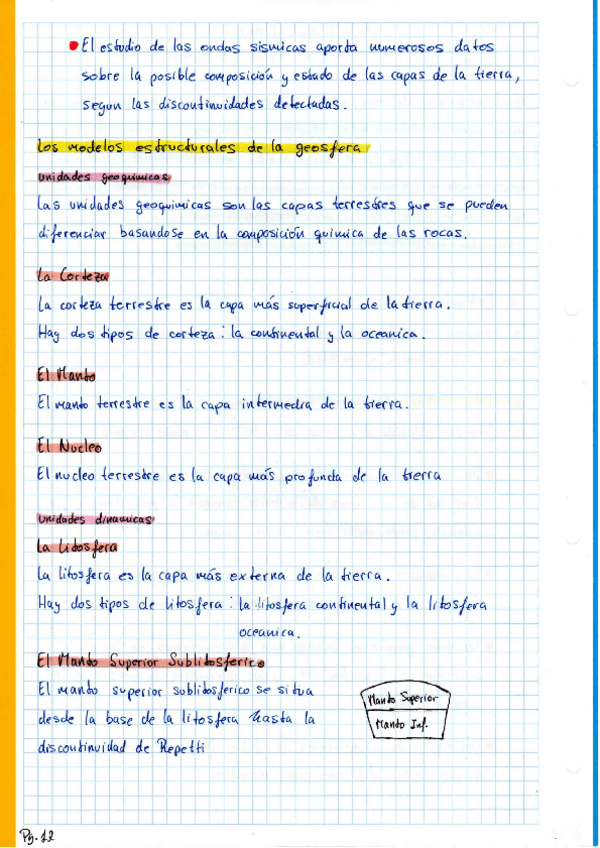 El estudio de las ondas sismicas aporta numerosos datos
sobre la posible composición y estado de las capas de la tierra,
segun las discontinuidades detectadas.
Los modelos estructurales de la geosfera
Unidades geoquimicas
Las unidades geoquimicas son las capas terrestres que se pueden
diferenciar basandose en la composición quimica de las rocas.
La Corteza
La corteza terrestre es la capa más superficial de la tierra.
Hay dos tipos de corteza: la continental y la oceanica.
El Manto
El manto terrestre es la capa intermedia de la tierra.
El Nucleo
El nucleo terrestre es la capa más profunda de la tierra
Unidades dinamicas
La Litosfera
La litosfera es la capa más externa de la tierra.
Hay dos tipos de litosfera: la litosfera continental y la litosfera
oceanica.
El Manto Superior Sublitosferico
El manto superior sublitosferico se situa
desde la base de la litosfera hasta la
discontinuidad de Repetti
Manto Superior
Manto Inf.
Pg. 12